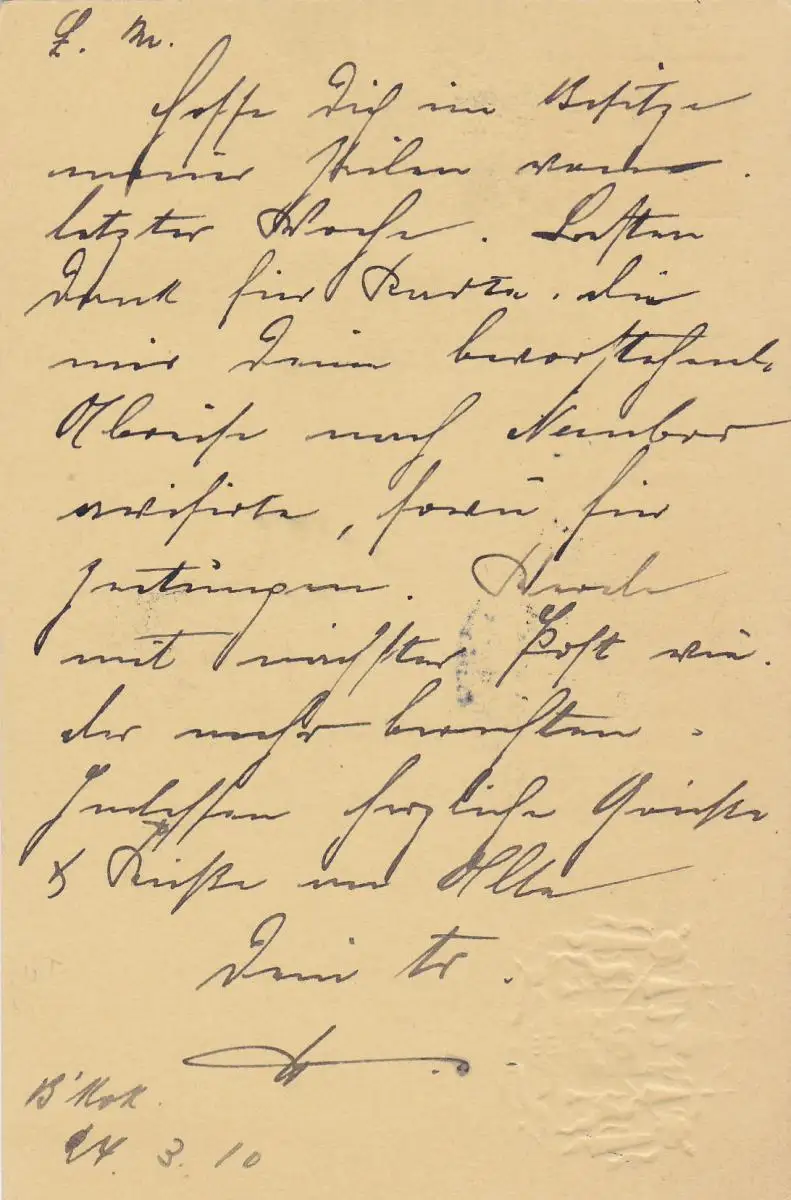 L. M.
Hoffe Dich im Besitze
meiner Zeilen von
letzter Woche. Besten
Dank für Karte, die
mir Deine bevorstehend.
Abreise nach
avisirte, sowie für
Zeitungen. Werde
mit nächster Post wie-
der mehr berichten.
Indessen herzliche Grüsse
& Küsse an Alle
Dein tr.
B'kok.
24. 3. 10